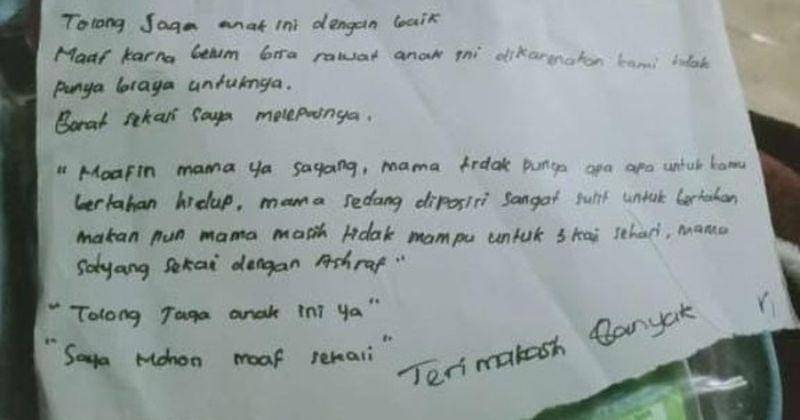 Tolong Jaga anak ini dengan baik
Maaf karna belum bisa rawat anak ini dikarenakan kami tidak
punya biaya untuknya.
Berat sekali saya melepasnya.
"Maafin mama ya sayang, mama tidak punya apa apa untuk kamu
bertahan hidup, mama sedang diposisi sangat sulit untuk bertahan
makan pun mama masih tidak mampu untuk 3 kai sehari, mama
sayang sekai dengan Ashraf"
"Tolong Jaga anak ini ya"
"Saya Mohon maaf sekali"
Terimakash Banyak